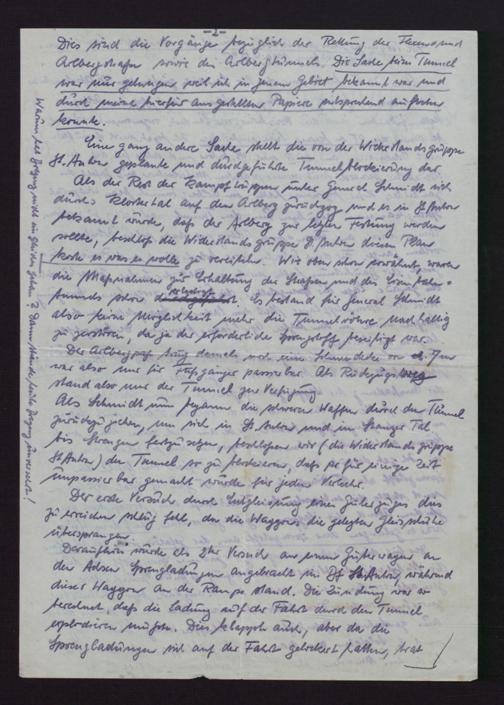 -2-
Dies sind die Vorgänge bezüglich der Rettung der Flexen und
Arlbergstrassen sowie des Arlbergtunnels. Die Sache beim Tunnel
war nur gelungen weil ich in jenem Gebiet bekannt war und
durch meine hierfür ausgestellten Papiere entsprechend auftreten
konnte.
Eine ganz andere Sache stellt die von der Widerstandsgruppe
St. Anton geplante und durchgeführte Tunnelblockierung dar.
Als der Rest der Kampftruppen unter General Schmidt sich
durchs Klostertal auf den Arlberg zurückzog und es in St. Anton
bekannt wurde, dass der Arlberg zur letzten Festung werden
sollte, beschloss die Widerstandsgruppe St. Anton diesen Plan
koste es was es wolle zu vereiteln. Wie oben schon erwähnt, waren
die Massnahmen zur Erhaltung der Strassen und des Eisenbahn=
tunnels schon. Es bestand für General Schmidt
also keine Möglichkeit mehr die Tunnelröhre nachhaltig
zu zerstören, da ja der erforderliche Sprengstoff beseitigt war.
Der Arlbergpass trug damals noch eine Schneedecke von
war also nur für Fussgänger passierbar. Als Rückzugsweg
stand also nur der Tunnel zur Verfügung.
Als Schmidt nun begann die schweren Waffen durch den Tunnel
zurückzuziehen, um sich in St. Anton und im Stanzer Tal
bis Strengen festzusetzen, beschlossen wir (die Widerstandsgruppe
St. Anton) den Tunnel so zu blockieren, dass er für einige Zeit
unpassierbar gemacht würde für jeden Verkehr.
Der erste Versuch durch Entgleisung eines Güterzuges dies
zu erreichen schlug fehl, da die Waggons die gelegten Gleisschuhe
übersprangen.
Daraufhin wurde als 2ter Versuch an einem Güterwagen an
den Achsen Sprengladungen angebracht im Bf St. Anton, während
dieser Waggon an der Rampe stand. Die Zündung war so
berechnet, dass die Ladung auf der Fahrt durch den Tunnel
explodieren musste. Dies klappte auch, aber da die
Sprengladungen sich auf der Fahrt gelockert hatten, trat